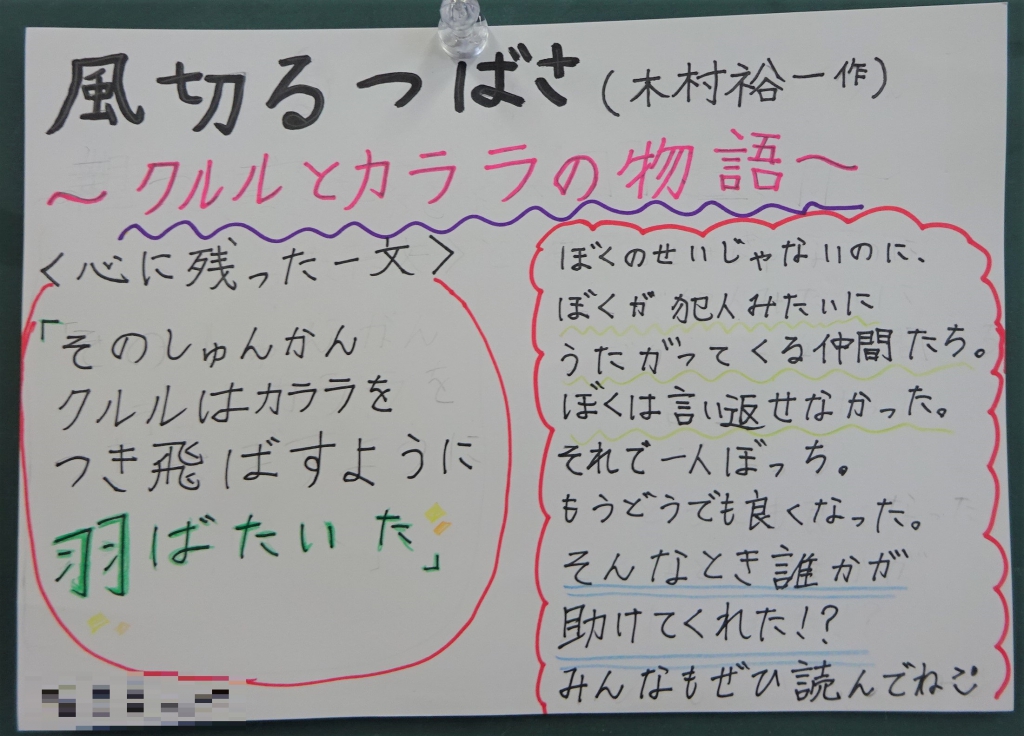 風切るつばさ(木村裕一作)
～クルルとカララの物語～
<心に残った一文>
「そのしゅんかん
クルルはカララを
つき飛ばすように
羽ばたいた」
ぼくのせいじゃないのに、
ぼくが犯人みたいに
うたがってくる仲間たち。
ぼくは言い返せなかった。
それで一人ぼっち。
もうどうでも良くなった。
そんなとき誰かが
助けてくれた!?
みんなもぜひ読んでね